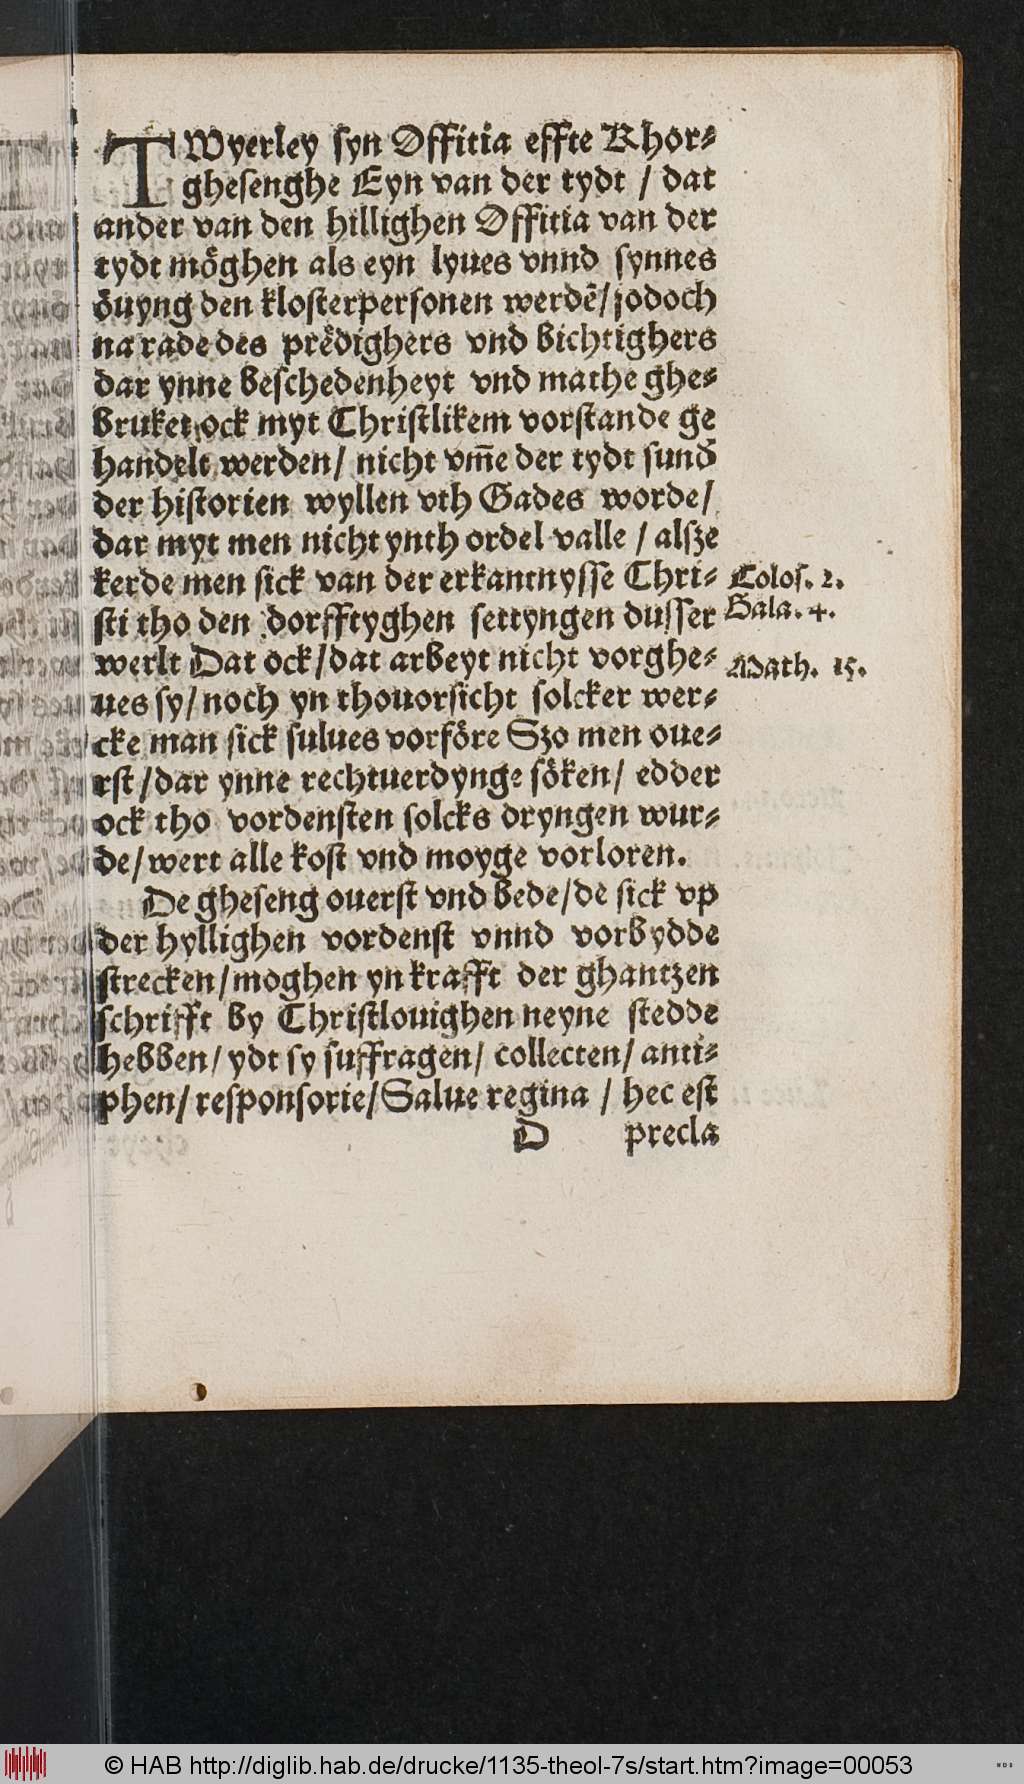 TWyerley syn Offitia effte Khor⸗
ghesenghe Eyn van der tydt / dat
ander van den hillighen Offitia van der
tydt moͤghen als eyn lyues vnnd synnes
oͤuyng den klosterpersonen werdē/ jodoch
na rade des preͤdighers vnd bichtighers
dar ynne beschedenheyt vnd mathe ghe⸗
bruket ock myt Christlikem vorstande ge
handelt werden/ nicht vm̄e der tydt sund̄
der historien wyllen vth Gades worde/
dar myt men nicht ynth ordel valle / alsze
kerde men sick van der erkantnysse Chri⸗
sti tho den dorfftyghen settyngen dusser
werlt Dat ock/ dat arbeyt nicht vorghe⸗
ues sy/ noch yn thouorsicht solcker wer⸗
cke man sick sulues vorfoͤre Szo men oue⸗
rst / dar ynne rechtuerdynge soͤken/ edder
ock tho vordensten solcks dryngen wur⸗
de/ wert alle kost vnd moyge vorloren.
De gheseng ouerst vnd bede/ de sick vp
der hyllighen vordenst vnnd vorbydde
strecken/ moghen yn krafft der ghantzen
schrifft by Christlouighen neyne stedde
hebben/ ydt sy suffragen/ collecten/ anti⸗
phen/ responsorie/ Salue regina / hec est
D precla
Colos. 2.
Gala. 4.
Math. 15.
© HAB http://diglib.hab.de/drucke/1135-theol-7s/start.htm?image=00053